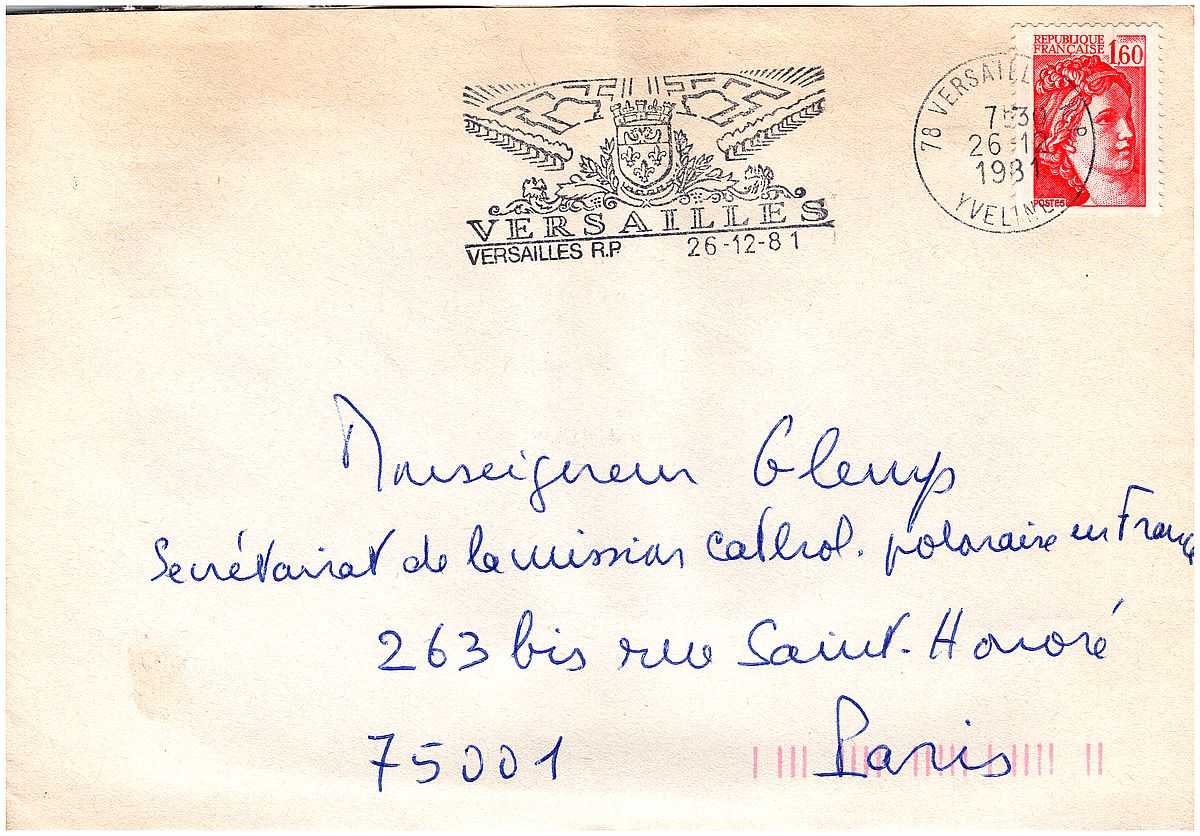 REPUBLIQUE
FRANÇAISE
1,60
POSTES
78 VERSAILLES R.P.
7H30
26-12
1981
YVELINES
VERSAILLES
VERSAILLES R.P. 26-12-81
Monseigneur Glemp
Secrétariat de la mission cathol. polonaise en France
263 bis rue Saint-Honoré
75001 Paris